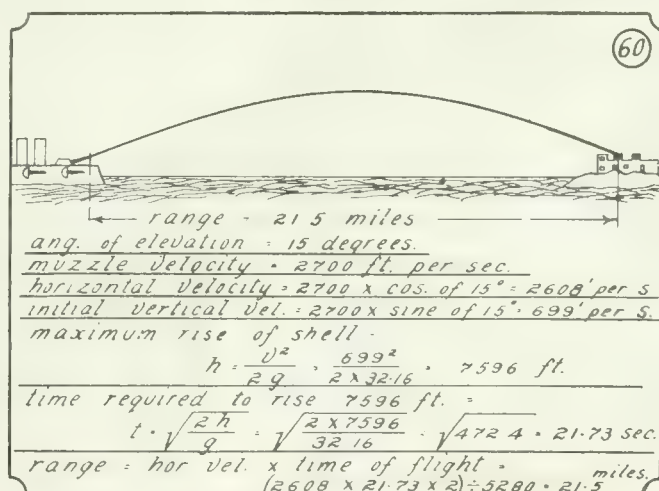 60
range = 21.5 miles
ang. of elevation = 15 degrees.
muzzle velocity = 2700 ft. per sec.
horizontal velocity = 2700 x cos. of 15° = 2608' per s
initial vertical vel. = 2700 x sine of 15° = 699' per s.
maximum rise of shell =
h = v²/2g = 699²/2 x 32.16 = 7596 ft.
time required to rise 7596 ft. =
t = √2h/g = √2 x 7596/32.16 = √472.4 = 21.73 sec.
range = hor vel. x time of flight = miles.
(2608 x 21.73 x 2) ÷ 5280 = 21.5